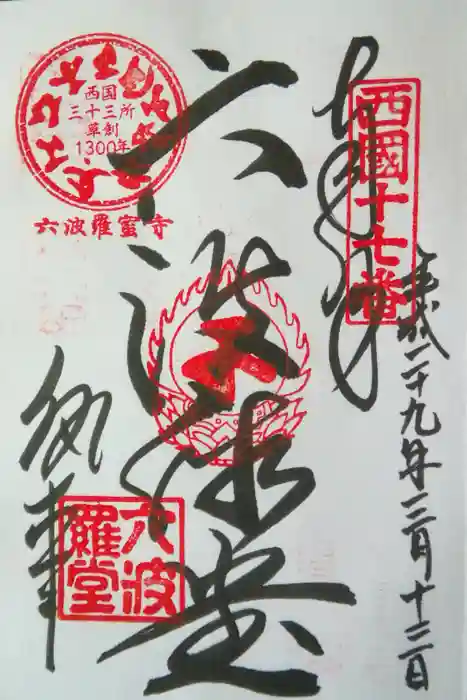 奉拝
西國十七番
平成二十九年三月十二日
六波羅堂
西国
三十三所
草創
1300年
六波羅蜜寺
六波
羅堂